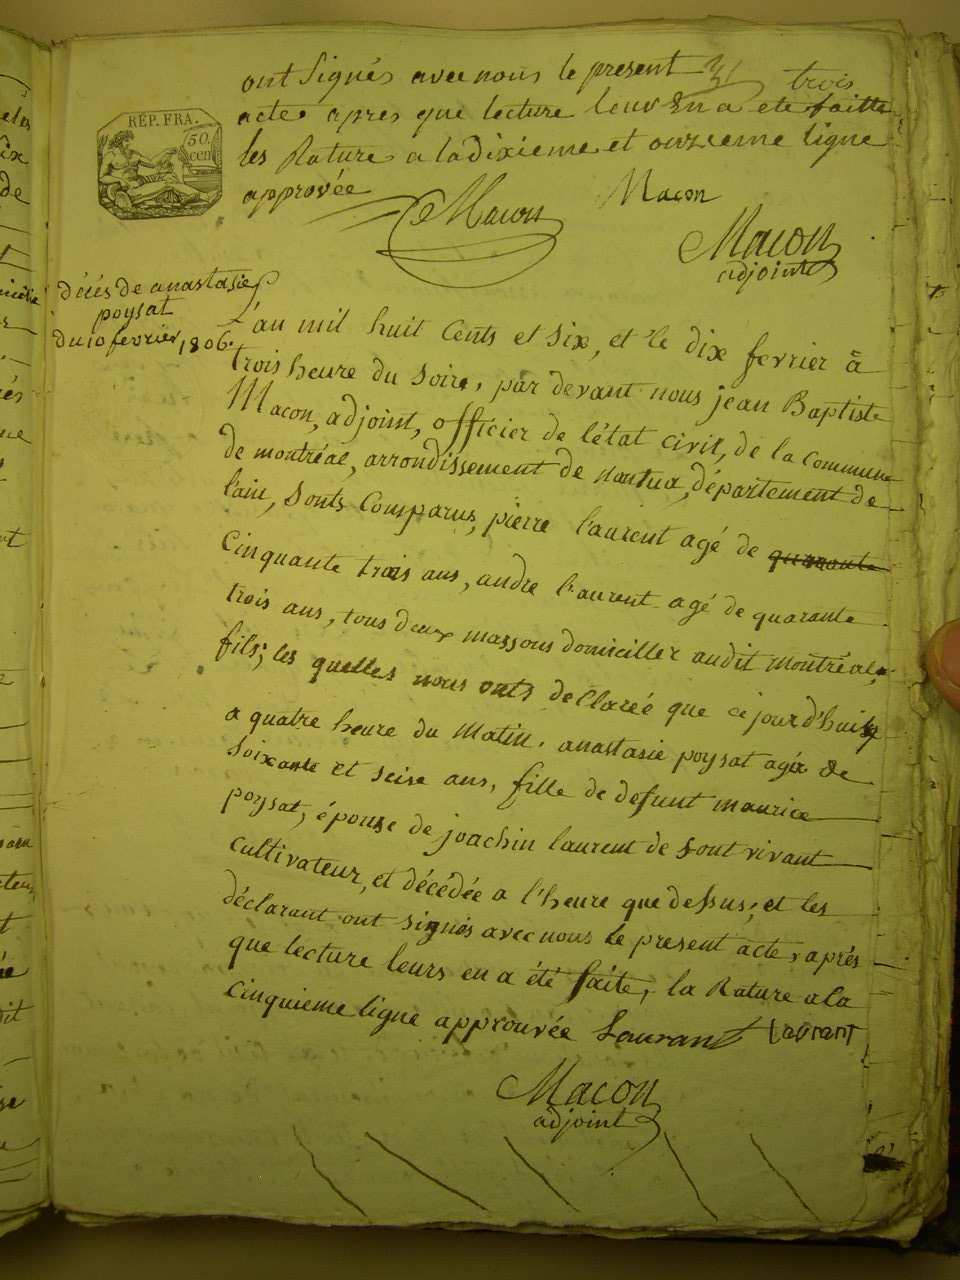 ont Signés avec nous le present
trois
acte apres que lecture leur En a ete faitte
les Rature a la dixieme et onzieme ligne
approvée
RÉP. FRA.
50.
cen
Macon
Macon
Macon
adjoint
décés de anastasie
poysat
du 10 fevrier 1806.
L'an mil huit Cents et Six, et le dix fevrier à
trois heure du Soire, par devant nous jean Baptiste
Macon, adjoint, officier de l'état civil, de la commune
de montréal, arrondissement de nantua, département de
l'ain, Sonts Comparus, pierre laurent agé de quarante
Cinquante trois ans, andre laurent agé de quarante
trois ans, tous deux massons domiciller audit montréal,
fils; les quelles nous onts dellareé que ce jourd'huit
a quatre heure du Matin, anastasie poysat agée de
Soixante et seise ans, fille de defunt maurice
poysat, épouse de joachin laurent de Sont vivant
Cultivateur, et décédée a l'heure que dessus; et les
déclarant ont signés avec nous le present acte, aprés
que lecture leurs en a été faite, la Rature a la
cinquieme ligne approuvée Laurant Laurant
Macon
adjoint